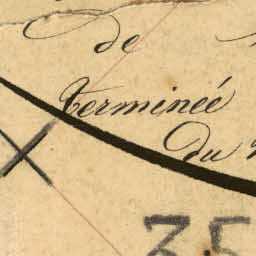 de
Terminée
du
35